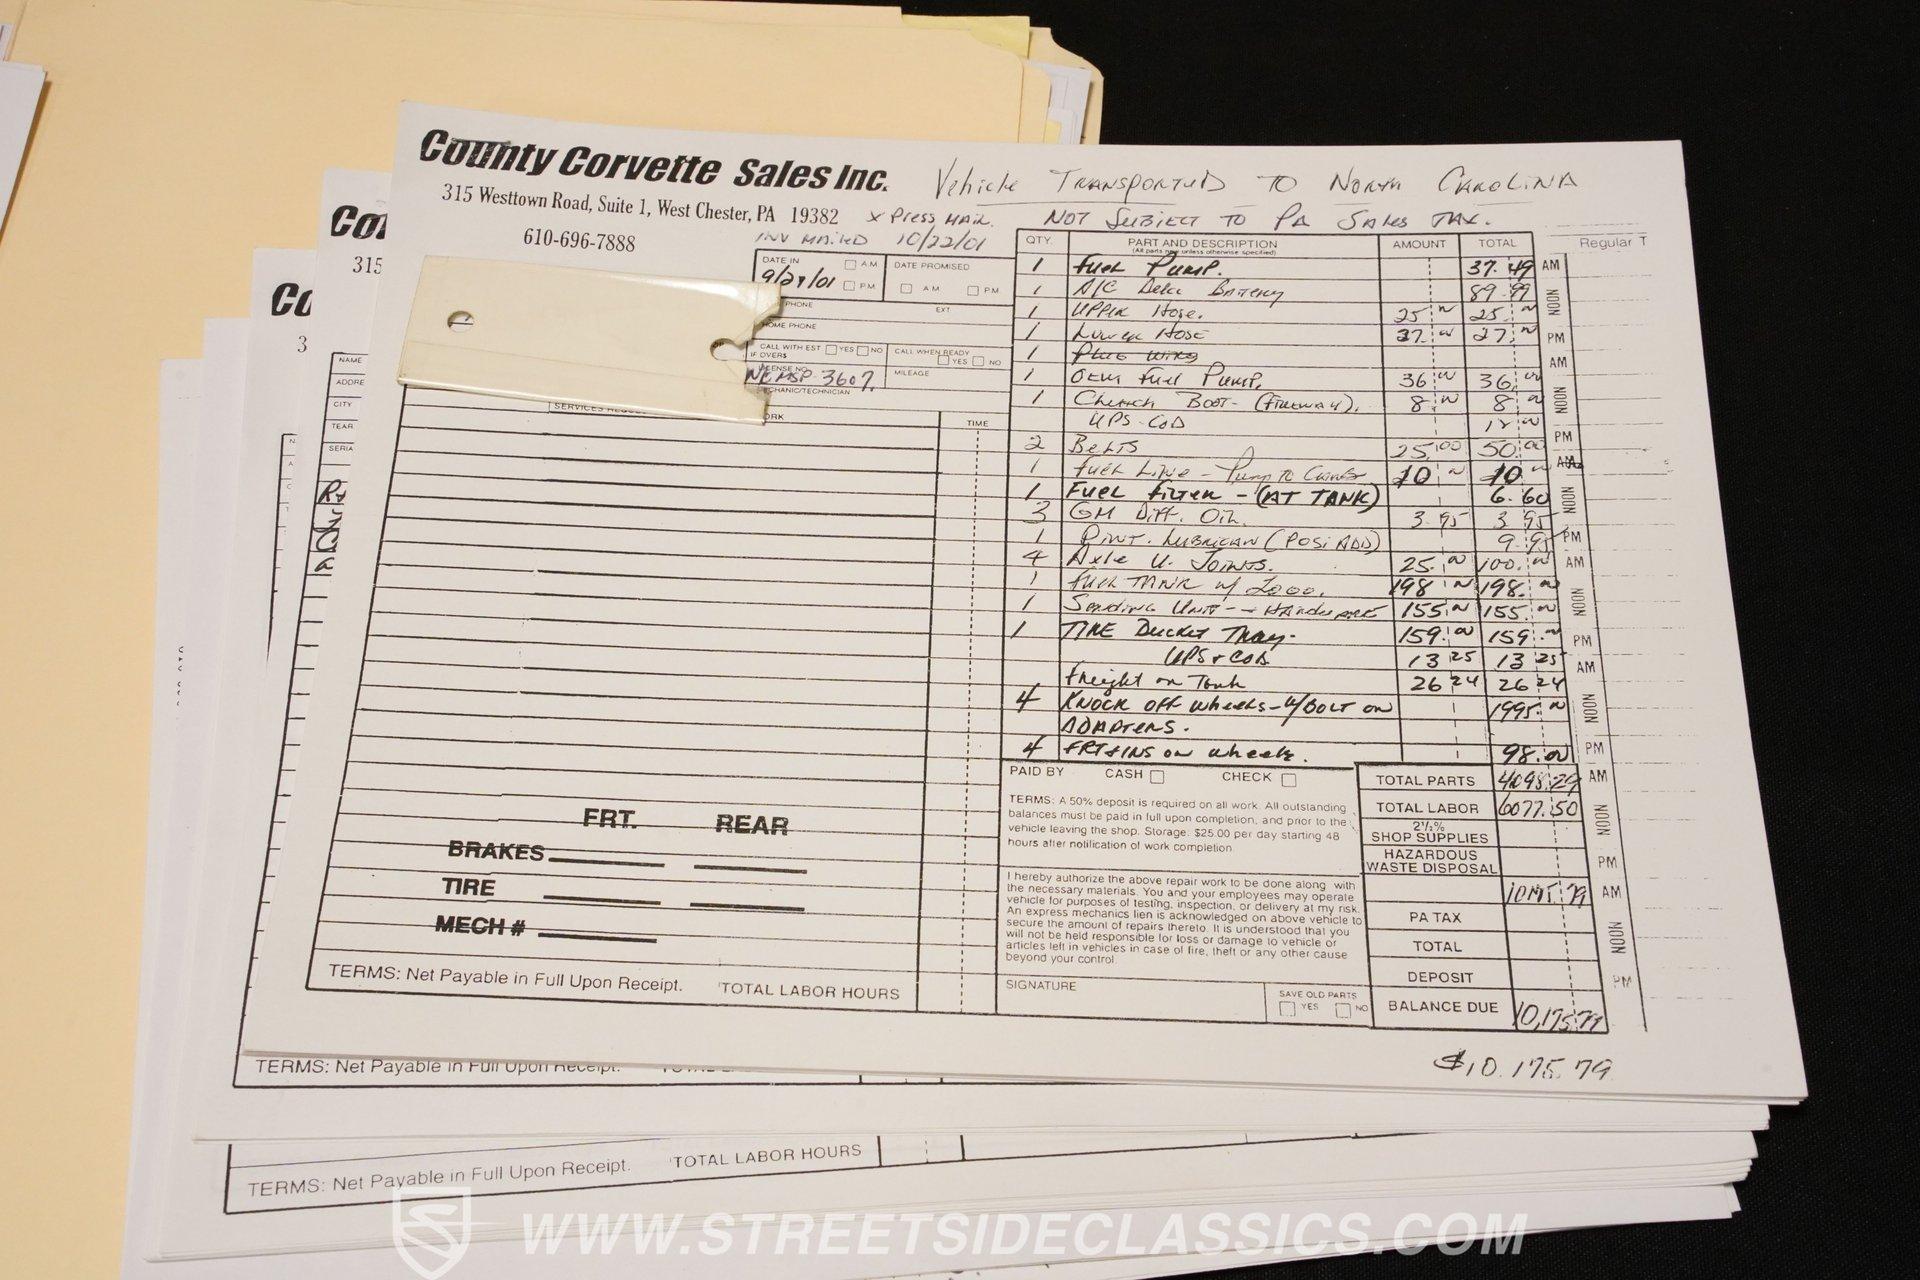 County Corvette Sales Inc.
315 Westtown Road, Suite 1, West Chester, PA 19382
610-696-7888
Vehicle Transported to North Carolina
Not Subject to Pa Sales Tax.
X Press Mail
Inv Mailed 10/22/01
DATE IN AM DATE PROMISED
9/27/01 PM AM PM
PHONE EXT
HOME PHONE
CALL WITH EST YES NO CALL WHEN READY
IF OVER$ YES NO
LICENSE NO. MILEAGE
3607.
MECHANIC/TECHNICIAN
SERVICES
ORK
TIME
QTY. PART AND DESCRIPTION AMOUNT TOTAL
(All parts new unless otherwise specified)
1 Fuel Pump. 37.49
1 A/C Delco Battery 89.99
1 Upper Hose. 25 25
1 Lower Hose 27 27
1 Plug Wires
1 OEM Fuel Pump. 36 36
1 Clutch Boot - (Firewall). 8 8
UPS-COD 12
2 Belts 25.00 50.00
1 Fuel Line - Pump to Carbs 10 10
1 Fuel Filter - (AT TANK) 6.60
3 GM Diff. Oil. 3.95 3.95
1 Pint. Lubrican (Posi Add) 9.95
4 Axle U. Joints. 25. 100.
1 Fuel Tank w/ 198 198.
1 Sending Unit - + Hardware 155. 155.
1 TIRE Bucket Tray. 159. 159.
UPS + COD 13 25 13 25
Freight on Tank 26 24 26 24
4 Knock off wheels - w/Bolt on 1995.
Adapters.
4 FRT + INS on wheels. 98.00
PAID BY CASH CHECK
TERMS: A 50% deposit is required on all work. All outstanding
balances must be paid in full upon completion, and prior to the
vehicle leaving the shop. Storage: $25.00 per day starting 48
hours after notification of work completion
I hereby authorize the above repair work to be done along with
the necessary materials. You and your employees may operate
vehicle for purposes of testing, inspection, or delivery at my risk.
An express mechanics lien is acknowledged on above vehicle to
secure the amount of repairs thereto. It is understood that you
will not be held responsible for loss or damage to vehicle or
articles left in vehicles in case of fire, theft or any other cause
beyond your control.
SIGNATURE
SAVE OLD PARTS
YES NO
TOTAL PARTS 4098.29
TOTAL LABOR 6077.50
2½%
SHOP SUPPLIES
HAZARDOUS
WASTE DISPOSAL
10175.79
PA TAX
TOTAL
DEPOSIT
BALANCE DUE 10,175.79
$10.175.79
FRT. REAR
BRAKES
TIRE
MECH #
TERMS: Net Payable in Full Upon Receipt. TOTAL LABOR HOURS
Regular T
AM
NOON
PM
AM
NOON
PM
AM
NOON
PM
AM
NOON
PM
AM
NOON
PM
AM
NOON
PM
AM
NOON
PM
Co
315
NAME
ADDRE
CITY
YEAR
SERIA
Co
3
TERMS: Net Payable in Full Upon Receipt.
TERMS: Net Payable in Full Upon Receipt. TOTAL LABOR HOURS
WWW.STREETSIDECLASSICS.COM